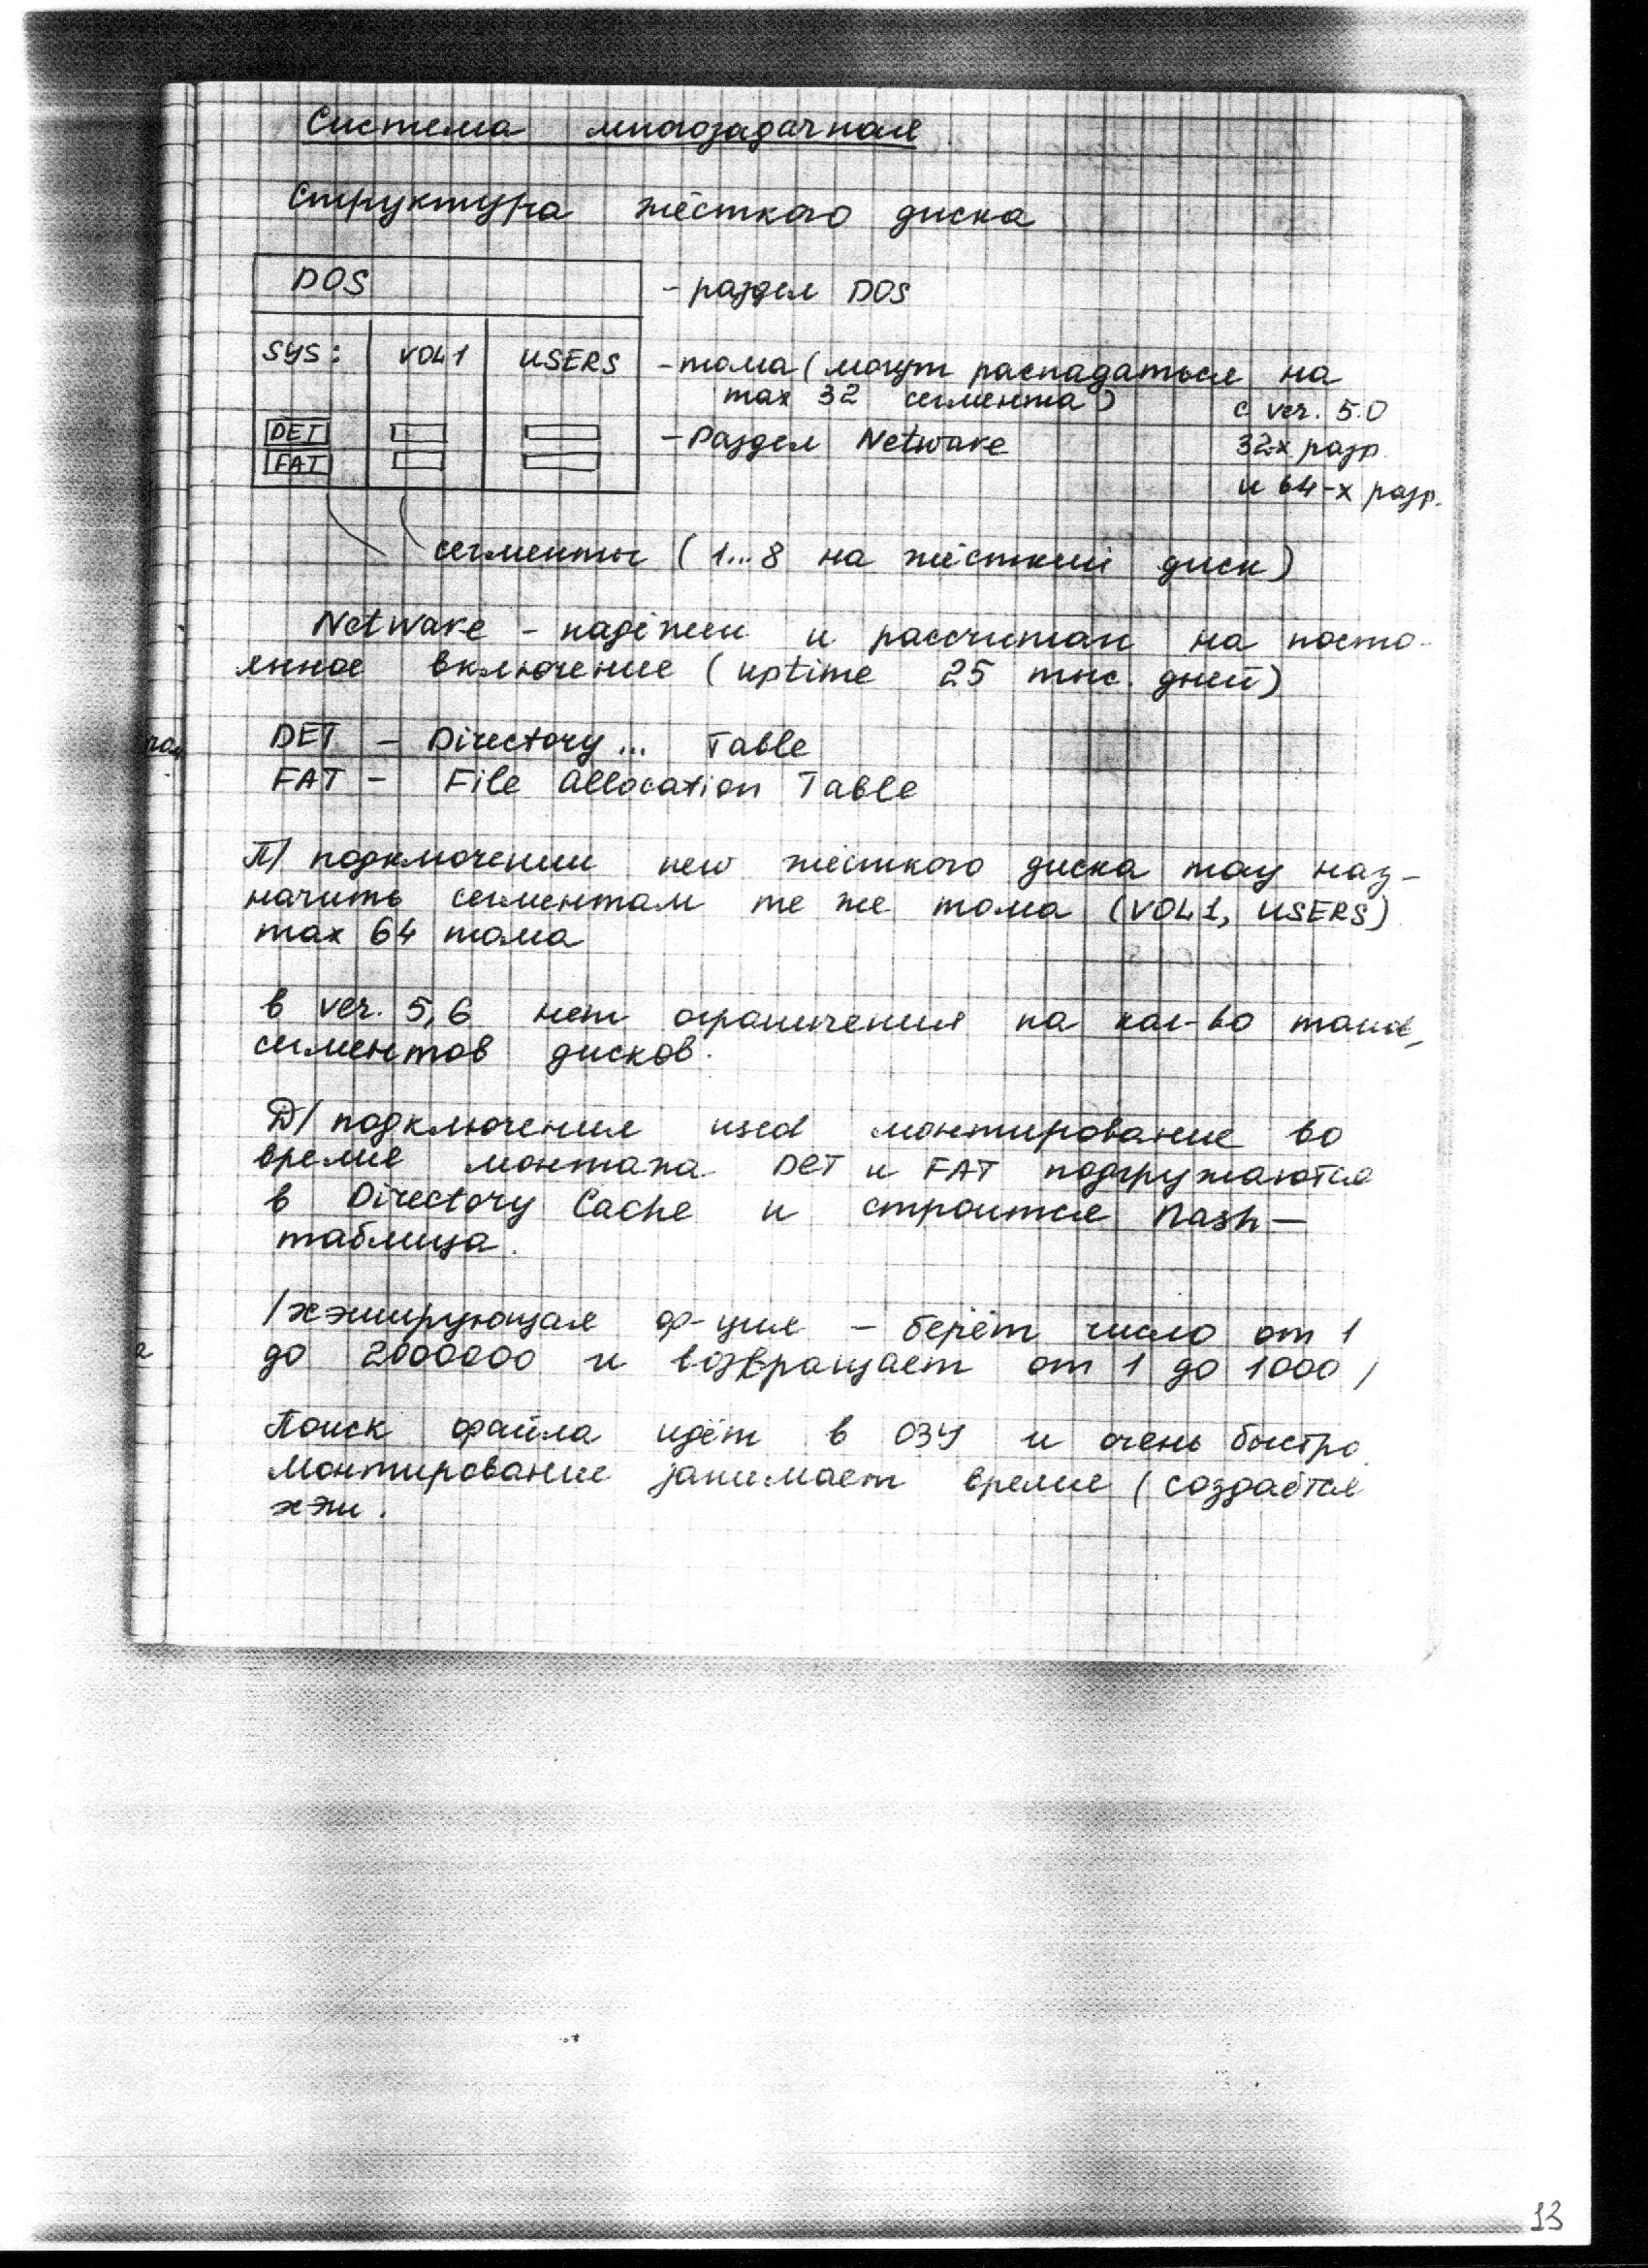 Система многозадачная
Структура жёсткого диска
DOS - раздел DOS
SYS: VOL1 USERS - тома (могут распадаться на
max 32 сегмента)
с ver. 5.0
DET - Раздел Netware 32х разр.
FAT
и 64-х разр.
сегменты (1...8 на жёсткий диск)
Netware - надёжен и рассчитан на посто-
янное включение (uptime 25 тыс. дней)
DET - Directory... Table
FAT - File Allocation Table
П/ подключении new жёсткого диска may наз-
начить сегментам те же тома (VOL1, USERS)
max 64 тома
в ver. 5,6 нет ограничения на кол-во томов,
сегментов дисков.
Д/ подключения used монтирование во
время монтажа DET и FAT подгружаются
в Directory Cache и строится Hash-
таблица.
/хэширующая ф-ция - берёт число от 1
до 2000000 и возвращает от 1 до 1000/
Поиск файла идёт в ОЗУ и очень быстро.
Монтирование занимает время (создаётся
хэш.
13